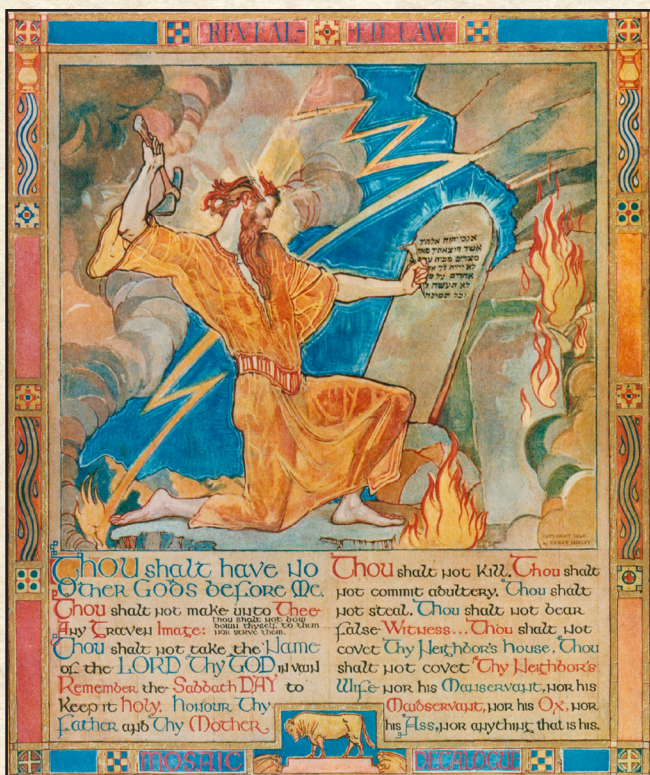 REVEAL-ED LAW
אנכי יהוה אלהך
אשר הוצאתך
מצרים מבית
לא יהיה לך
אחרים על
לא תעשה
וכל תמונה
COPYRIGHT
by VIOLET OAKLEY
Thou shalt have No
Other Gods before Me.
Thou shalt not make unto Thee
Any Graven Image: thou shalt not bow
down thyself to them
nor serve them.
Thou shalt not take the Name
of the LORD Thy GOD in vain
Remember the Sabbath DAY to
Keep it holy. Honour Thy
Father and Thy Mother.
Thou shalt not Kill. Thou shalt
not commit adultery. Thou shalt
not steal. Thou shalt not bear
false Witness... Thou shalt not
covet Thy Neighbor's house. Thou
shalt not covet Thy Neighbor's
Wife nor his Manservant, nor his
Maidservant, nor his Ox, nor
his Ass, nor anything that is his.
MOSAIC DECALOGUE